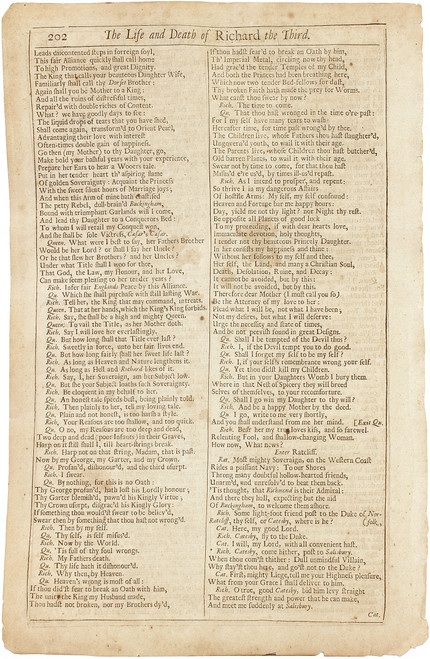 202 The Life and Death of Richard the Third.
Leads discontented steps in forreign soyl,
This fair Alliance quickly shall call home
To high Promotions, and great Dignity.
The King that calls your beauteous Daughter Wife,
Familiarly shall call thy Dorset Brother:
Again shall you be Mother to a King:
And all the ruins of distressful times,
Repair'd with double riches of Content.
What? we have goodly days to see:
The liquid drops of tears that you have shed,
Shall come again, transform'd to Orient Pearl,
Advantaging their love with interest
Often-times double gain of happiness.
Go then (my Mother) to thy Daughter, go,
Make bold your bashful years with your experience,
Prepare her Ears to hear a Wooers tale.
Put in her tender heart th' aspiring flame
Of golden Soveraignty: Acquaint the Princess
With the sweet silent hours of Marriage joys;
And when this arm of mine hath chastised
The petty Rebel, dull-brain'd Buckingham,
Bound with triumphant Garlands will I come,
And lead thy Daughter to a Conquerors bed:
To whom I will retail my Conquest won,
And she shall be sole Victress, Cæsar's Cæsar.
Queen. What were I best to say, her Fathers Brother
Would be her Lord? or shall I say her Unkle?
Or he that slew her Brothers? and her Uncles?
Under what Title shall I woo for thee,
That God, the Law, my Honour, and her Love,
Can make seem pleasing to her tender years?
Rich. Infer fair Englands Peace by this Alliance.
Qu. Which she shall purchase with still lasting War.
Rich. Tell her, the King that may command, intreats.
Queen. That at her hands, which the King's King forbids.
Rich. Say, she shall be a high and mighty Queen.
Queen. To vail the Title, as her Mother doth.
Rich. Say I will love her everlastingly.
Qu. But how long shall that Title ever last?
Rich. Sweetly in force, unto her fair lives end.
Qu. But how long fairly shall her sweet life last?
Rich. As long as Heaven and Nature lengthens it.
Qu. As long as Hell and Richard likes of it.
Rich. Say, I, her Soveraign, am her Subject low.
Qu. But she your Subject loaths such Soveraignty.
Rich. Be eloquent in my behalf to her.
Qu. An honest tale speeds best, being plainly told.
Rich. Then plainly to her, tell my loving tale.
Qu. Plain and not honest, is too harsh a style.
Rich. Your Reasons are too shallow, and too quick.
Qu. O no, my Reasons are too deep and dead,
Two deep and dead (poor Infants) in their Graves,
Harp on it still shall I, till heart-strings break.
Rich. Harp not on that string, Madam, that is past.
Now by my George, my Garter, and my Crown.
Qu. Profan'd, dishonour'd, and the third usurpt.
Rich. I swear.
Qu. By nothing, for this is no Oath:
Thy George profan'd, hath lost his Lordly honour;
Thy Garter blemish'd, pawn'd his Kingly Virtue;
Thy Crown usurpt, disgrac'd his Kingly Glory:
If something thou would'st swear to be believ'd,
Swear then by something that thou hast not wrong'd.
Rich. Then by my self.
Qu. Thy self, is self misus'd.
Rich. Now by the World.
Qu. 'Tis full of thy foul wrongs.
Rich. My Fathers death.
Qu. Thy life hath it dishonour'd.
Rich. Why then, by Heaven.
Qu. Heaven's wrong is most of all:
If thou didst fear to break an Oath with him,
The unity the King my Husband made,
Thou hadst not broken, nor my Brothers dy'd,
If thou hadst fear'd to break an Oath by him,
Th' Imperial Metal, circling now thy head,
Had grac'd the tender Temples of my Child,
And both the Princes had been breathing here,
Which now two tender Bed-fellows for dust,
Thy broken Faith hath made the prey for Worms.
What canst thou swear by now?
Rich. The time to come.
Qu. That thou hast wronged in the time o're-past:
For I my self have many tears to wash
Hereafter time, for time past wrong'd by thee.
The Children live, whose Fathers thou hast slaughter'd,
Ungovern'd youth, to wail it with their age.
The Parents live, whose Children thou hast butcher'd,
Old barren Plants, to wail it with their age.
Swear not by time to come, for that thou hast
Misus'd e're us'd, by times ill-us'd repast.
Rich. As I intend to prosper, and repent:
So thrive I in my dangerous Affairs
Of hostile Arms: My self, my self confound:
Heaven and Fortune bar me happy hours:
Day, yield me not thy light? nor Night thy rest.
Be opposite all Planets of good luck
To my proceeding, if with dear hearts love,
Immaculate devotion, holy thoughts,
I tender not thy beauteous Princely Daughter.
In her consists my happiness and thine:
Without her follows to my self and thee,
Her self, the Land, and many a Christian Soul,
Death, Desolation, Ruine, and Decay:
It cannot be avoided, but by this:
It will not be avoided, but by this.
Therefore dear Mother (I must call you so)
Be the Attorney of my love to her:
Plead what I will be, not what I have been;
Not my deserts, but what I will deserve:
Urge the necessity and state of times,
And be not peevish found in great Designs.
Qu. Shall I be tempted of the Devil thus?
Rich. I, if the Devil tempt you to do good.
Qu. Shall I forget my self to be my self?
Rich. I, if your self's remembrance wrong your self.
Qu. Yet thou didst kill my Children.
Rich. But in your Daughters Womb I bury them.
Where in that Nest of Spicery they will breed
Selves of themselves, to your recomforture.
Qu. Shall I go win my Daughter to thy will?
Rich. And be a happy Mother by the deed.
Qu. I go, write to me very shortly,
And you shall understand from me her mind. [Exit Qu.
Rich. Bear her my true loves kiss, and so farewel.
Relenting Fool, and shallow-changing Woman.
How now, What news?
Enter Ratcliff.
Rat. Most mighty Soveraign, on the Western Coast
Rides a puissant Navy: To our Shores
Throng many doubtful hollow-hearted friends,
Unarm'd, and unresolv'd to beat them back.
'Tis thought, that Richmond is their Admiral:
And there they hull, expecting but the aid
Of Buckingham, to welcome them ashore.
Rich. Some light-foot friend post to the Duke of Nor-
Ratcliff, thy self, or Catesby, where is he? (folk;
Cat. Here, my good Lord.
Rich. Catesby, fly to the Duke.
Cat. I will, my Lord, with all convenient hast.
Rich. Ratcliff, come hither, post to Salisbury,
When thou com'st thither: Dull unmindful Villain,
Why stay'st thou here, and go'st not to the Duke?
Cat. First, mighty Liege, tell me your Highness pleasure,
What from your Grace I shall deliver to him.
Rich. O true, good Catesby, bid him levy straight
The greatest strength and power that he can make,
And meet me suddenly at Salisbury.
Cat.